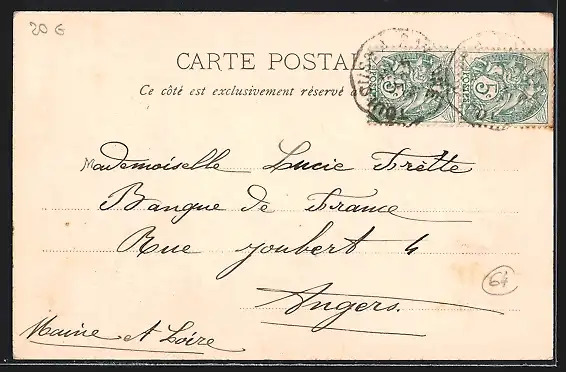 20 €
CARTE POSTAL
Ce côté est exclusivement réservé à
5 5
Mademoiselle Lucie Frètte
Banque de France
Rue Joubert 4
64
Angers.
Maine et Loire